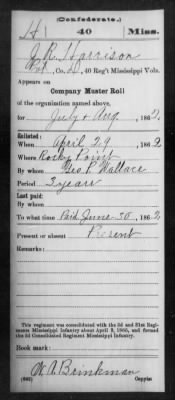 (Confederate.)
H 40 Miss.
J. R. Harrison
Pvt, Co. , 40 Reg't Mississippi Vols.
Appears on
Company Muster Roll
of the organization named above,
for July & Aug, 1862.
Enlisted:
When April 29, 1862
Where Rocky Point
By whom Geo. P. Wallace
Period 3 years
Last paid:
By whom
To what time Paid June 30, 1862
Present or absent Present
Remarks:
This regiment was consolidated with the 3d and 31st Regiments Mississippi Infantry about April 9, 1865, and formed the 3d Consolidated Regiment Mississippi Infantry.
Book mark:
W. A. Brinkman
(642) Copyist.